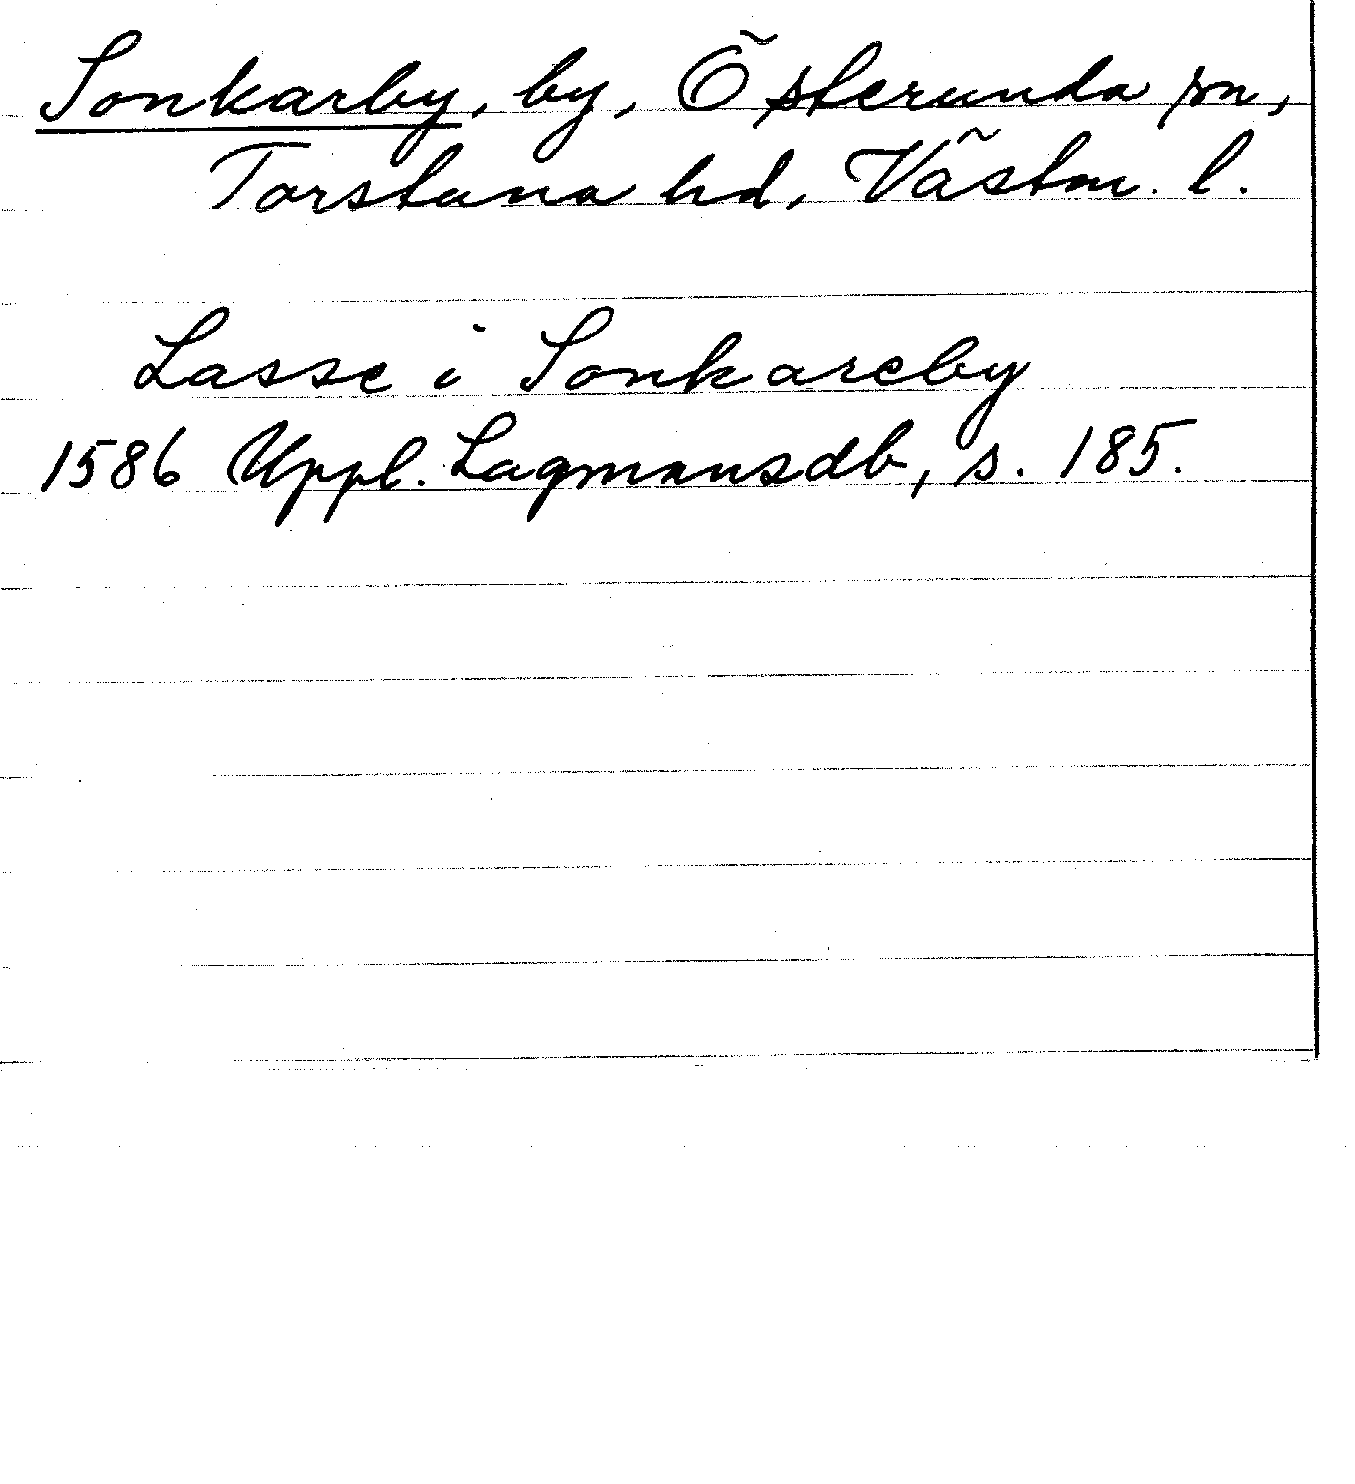 Sonkarby, by, Österunda sn,
Torstuna hd, Västm. l.
Lasse i Sonkareby
1586 Uppl. Lagmansdb, s. 185.